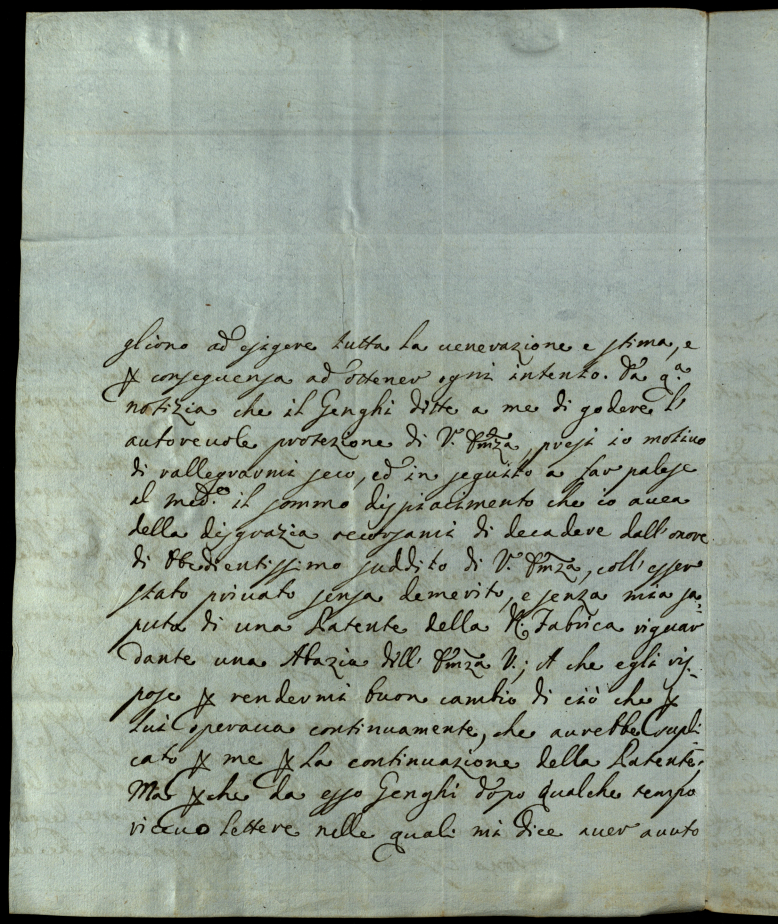 gliono ad esigere tutta la uenerazione e stima, e
p conseguenza ad ottener ogni intento. Da q.a
notizia che il Genghi dette a me di godere l'
autoreuole protezione di V. Emza, presi io motiuo
di rallegrarmi seco, ed in seguito a far palese
al med.o il sommo dispiacimento che io auea
della disgrazia occorsami di decadere dall'onore
di obedientissimo suddito di V. Emza, coll'esser
stato priuato senza demerito, e senza mia sa=
puta di una Patente della R. Fabrica riguar
dante una Abazia dell' Emza V.; A che egli ris=
pose p rendermi buon cambio di ciò che p
lui operaua continuamente, che aurebbe supli
cato p me p la continuazione della Patente.
Ma pche da esso Genghi dopo qualche tempo
riceuo lettere nelle quali mi dice auer auuto